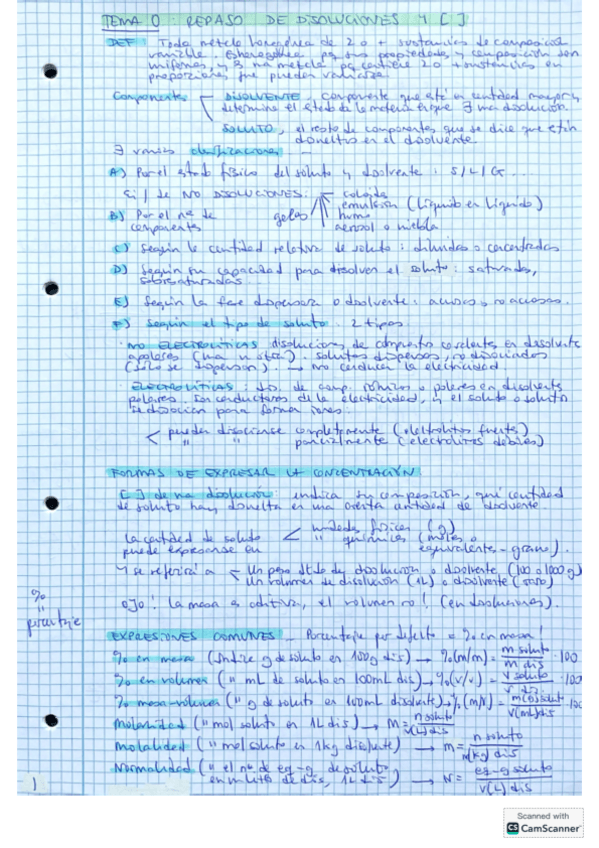 TEMA 0 : REPASO DE DISOLUCIONES Y [ ]
DEF : Toda mezcla homogénea de 2 o + sustancias de composición
variable. Es homogénea pq sus propiedades y composición son
uniformes, y es una mezcla pq contiene 2 o + sustancias en
proporciones que pueden variarse.
Componentes DISOLVENTE, componente que está en cantidad mayor y
determina el estado de la materia en que ∃ una disolución.
SOLUTO, el resto de componentes que se dice que están
disueltos en el disolvente.
∃ varias clasificaciones
A) Por el estado físico del soluto y disolvente : S/L/G...
Ej/ de NO DISOLUCIONES: coloide
emulsión (líquido en líquido)
B) Por el nº de geles humo
componentes aerosol o niebla
C) Según la cantidad relativa de soluto : diluidas o concentradas
D) Según su capacidad para disolver el soluto : saturadas,
sobresaturadas...
E) Según la fase dispersora o disolvente : acuosas y no acuosas.
F) Según el tipo de soluto : 2 tipos.
NO ELECTROLÍTICAS disoluciones de compuesto covalentes en disolvente
apolares (una u otra). solutos dispersos, no disociados
(sólo se dispersan). → no conducen la electricidad
ELECTROLÍTICAS : dis. de comp. iónicos o polares en disolvente
polares. Son conductores de la electricidad, y el soluto o solutos
se disocian para formar iones:
< pueden disociarse completamente (electrolitos fuertes)
" " parcialmente (electrolitos débiles)
FORMAS DE EXPRESAR LA CONCENTRACIÓN
[ ] de una disolución : indica su composición, qué cantidad
de soluto hay disuelta en una cierta cantidad de disolvente
La cantidad de soluto < unidades físicas (g)
puede expresarse en " químicas (moles o
equivalentes-gramo).
Y se referirá a < Un peso dtdo de disolución o disolvente (100 o 1000 g)
Un volumen de disolución (1L) o disolvente
OJO! La masa es aditiva, el volumen no! (en disoluciones).
%
"
porcentaje
EXPRESIONES COMUNES _ Porcentaje por defecto = % en masa!
% en masa (Indica g de soluto en 100g dis) → %(m/m) = m soluto / m dis · 100
% en volumen (" mL de soluto en 100mL dis) → %(v/v) = v soluto / v dis · 100
% masa-volumen (" g de soluto en 100mL disolvente) → %(m/V) = m(g) solut / V(mL) dis · 100
Molaridad (" mol soluto en 1L dis) → M = n soluto / V(L) dis
Molalidad (" mol soluto en 1kg disolvente) → m = n soluto / (kg) dis
Normalidad (" el nº de eq-g de soluto
en un litro de dis, 1L dis) → N = eq-g soluto / V(L) dis
1
Scanned with
CS CamScanner